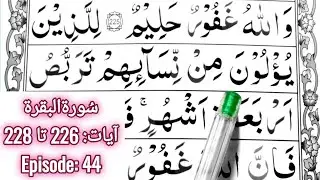 وَاللّٰهُ غَفُوْرٌ حَلِيْمٌ ۝۲۲۵ لِلَّذِيْنَ
يُؤْلُوْنَ مِنْ نِّسَآئِهِمْ تَرَبُّصُ
اَرْبَعَةِ اَشْهُرٍ ۚ فَ
فَاِنَّ اللّٰهَ غَفُوْرٌ
سُورۃالبقرۃ
آیات: 226 تا 228
Episode: 44